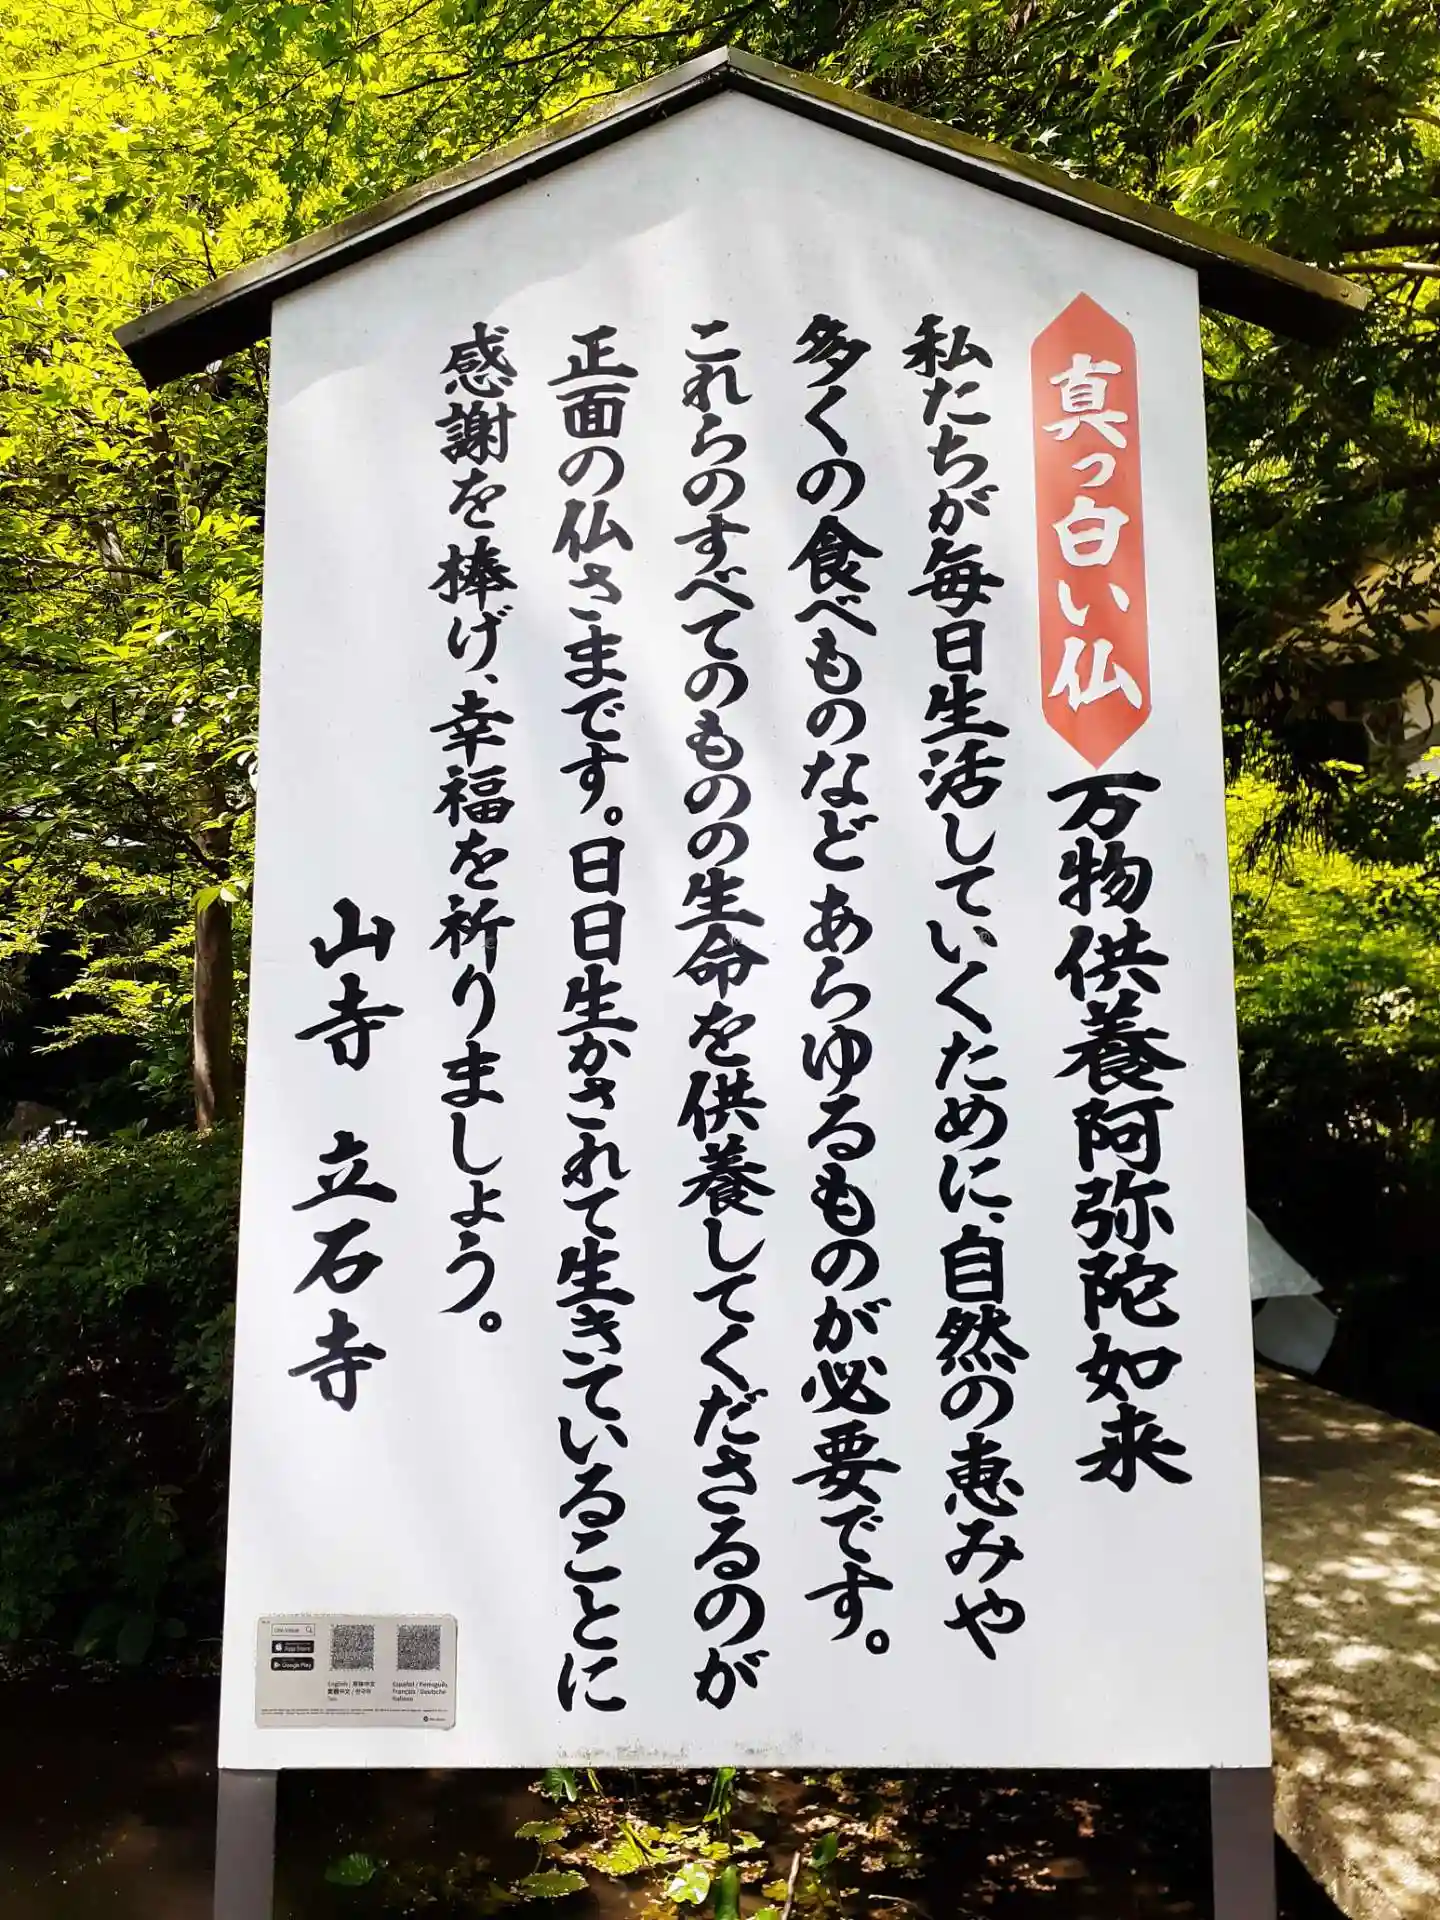 真っ白い仏
万物供養阿弥陀如来
私たちが毎日生活していくために、自然の恵みや
多くの食べものなど あらゆるものが必要です。
これらのすべてのものの生命を供養してくださるのが
正面の仏さまです。日日生かされて生きていることに
感謝を捧げ、幸福を祈りましょう。
山寺 立石寺
App Store
Google Play
English / 简体中文
繁體中文 / 한국어
ไทย
Español / Português
Français / Deutsche
Italiano